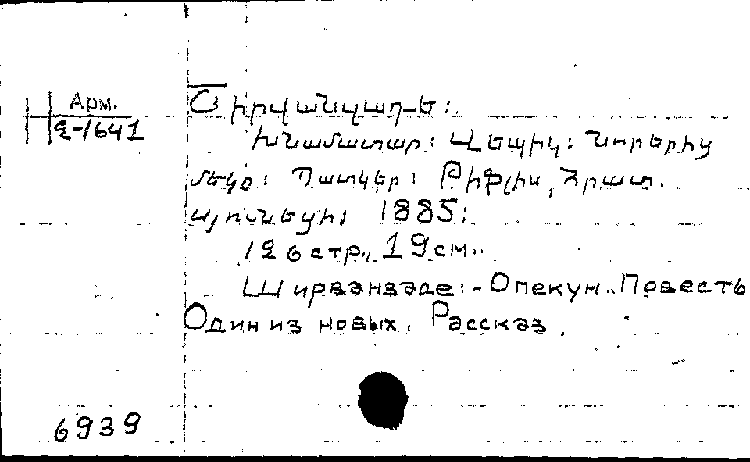 Арм.
2-1641
Շիրվանզադե:
Խնամատար: Վեպիկ: Նորերից
մեկը: Պատկեր: Թիֆլիս, Հրատ.
1885:
126 стр., 19 см.
Ширванзаде: - Опекун. Повесть
Один из новых. Рассказ.
6939